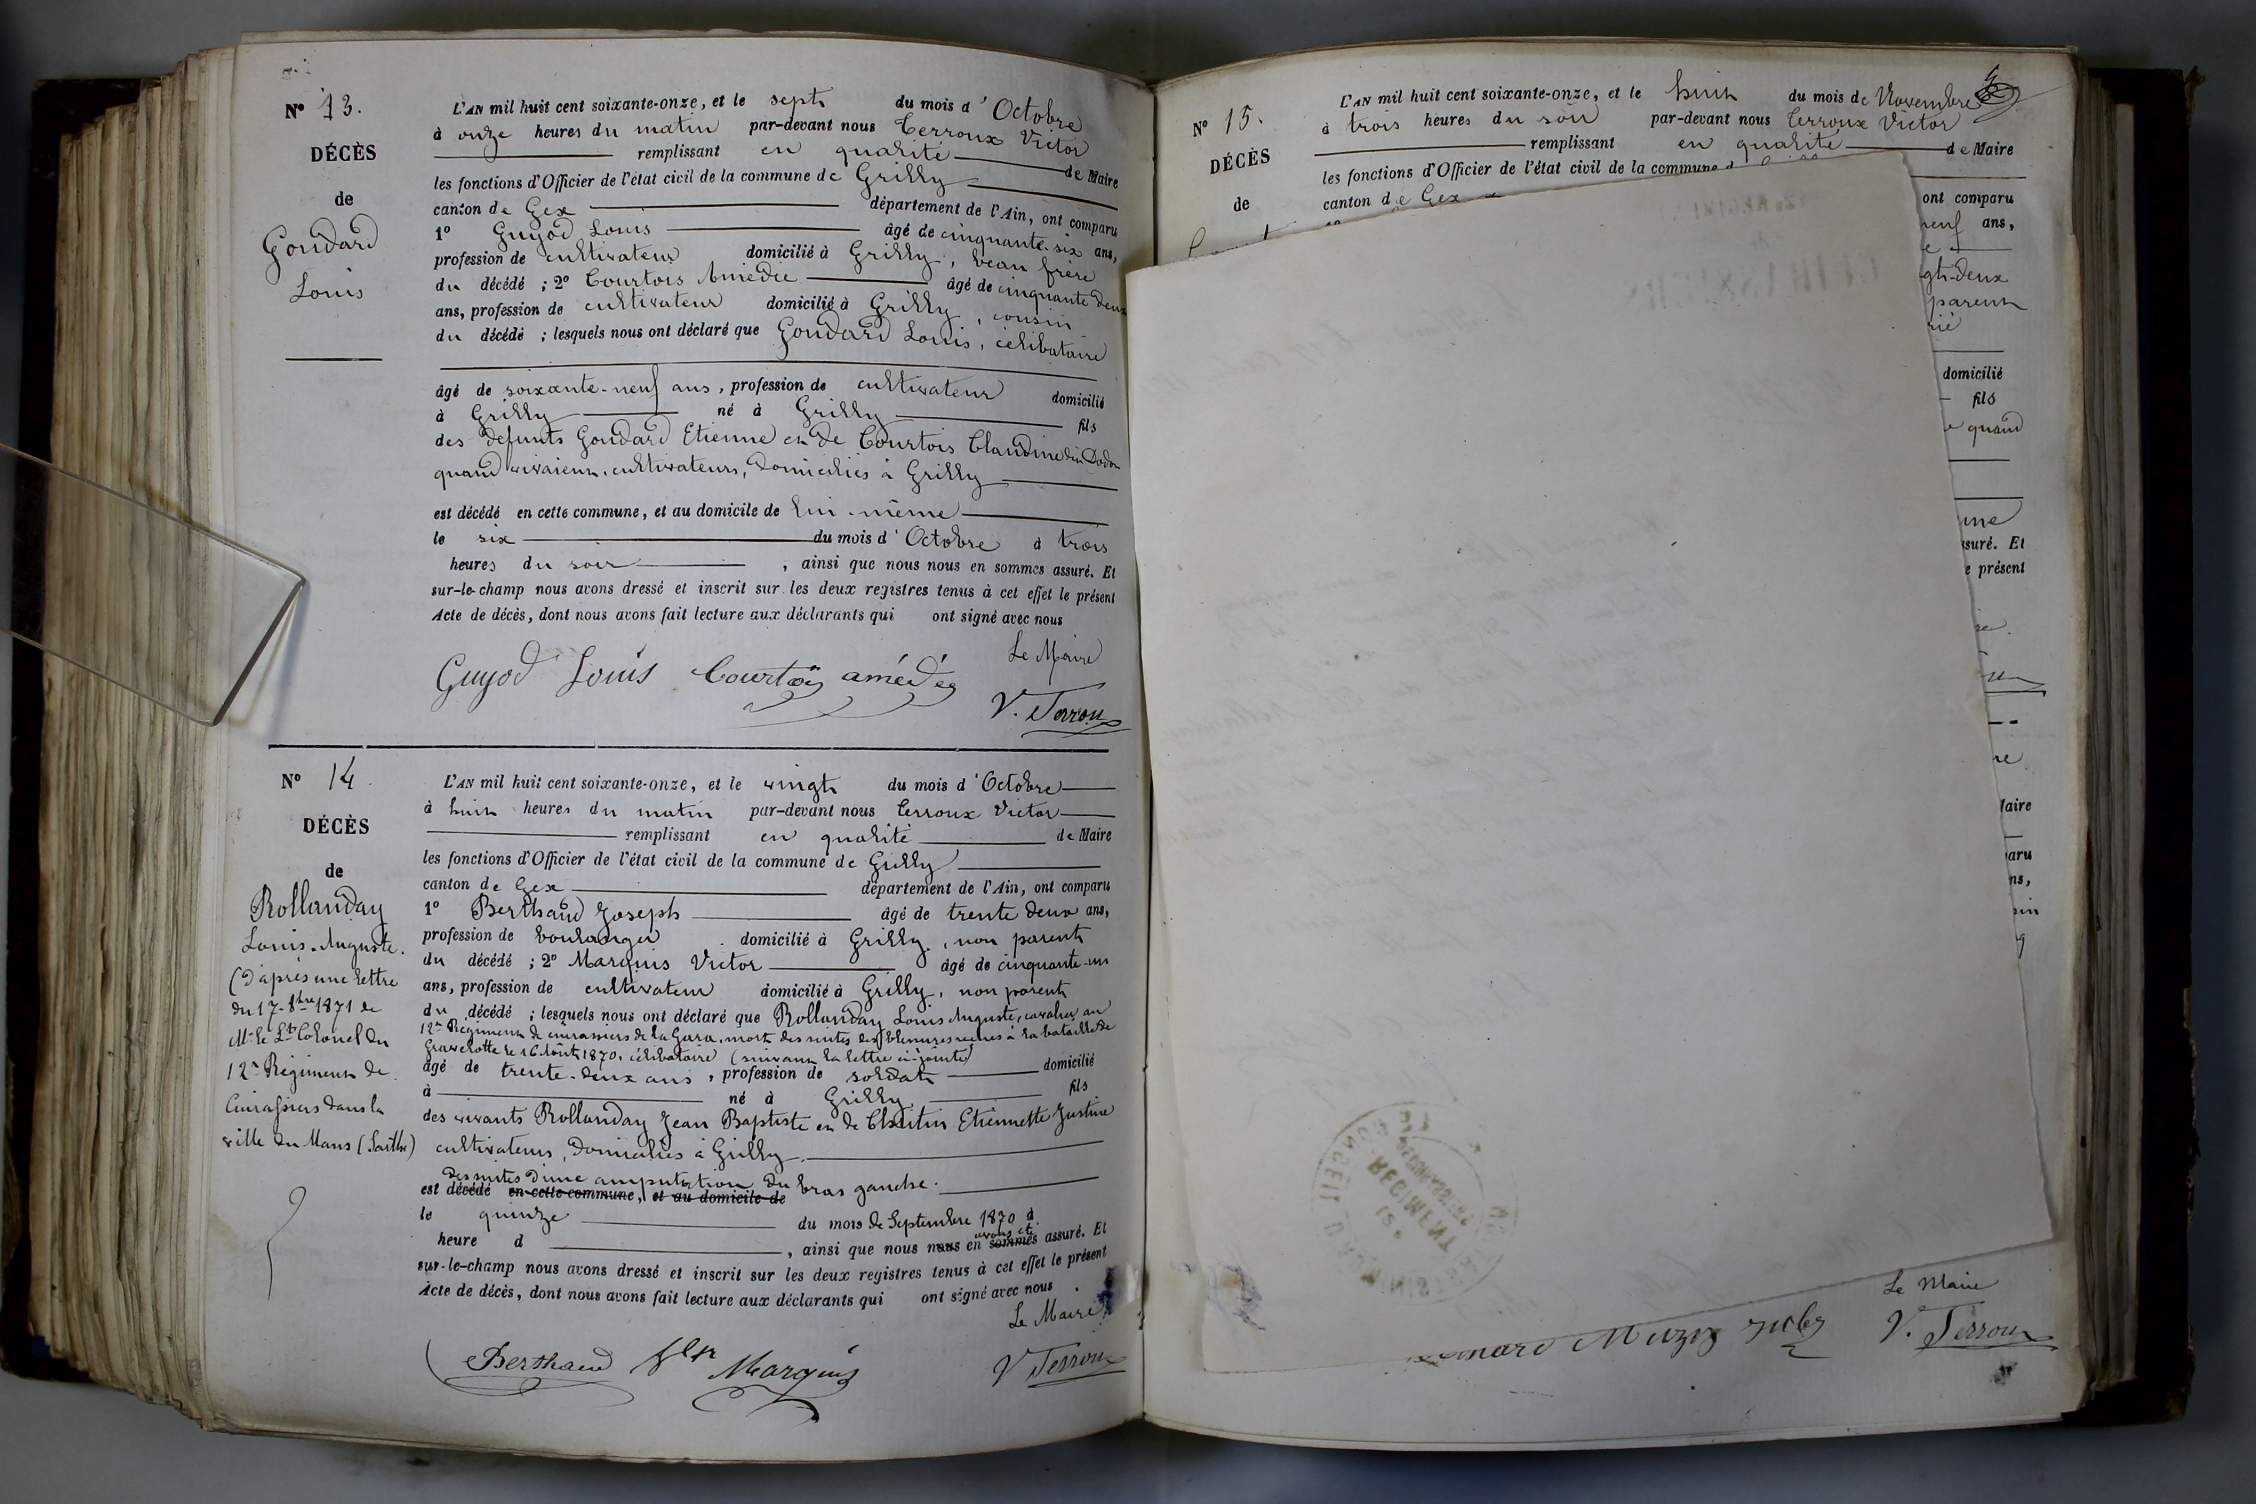 N° 13.
DÉCÈS
de
Goudard
Louis
L'AN mil huit cent soixante-onze, et le sept du mois d'Octobre
à onze heures du matin par-devant nous Terroux Victor
remplissant en qualité de Maire
les fonctions d'Officier de l'état civil de la commune de Grilly
canton de Gex département de l'Ain, ont comparu
1° Guyod Louis âgé de cinquante-six ans,
profession de cultivateur domicilié à Grilly, beau frère
du décédé ; 2° Courtois Amédée âgé de cinquante deux
ans, profession de cultivateur domicilié à Grilly, cousin
du décédé ; lesquels nous ont déclaré que Goudard Louis, célibataire
âgé de soixante-neuf ans, profession de cultivateur domicilié
à Grilly né à Grilly fils
des défunts Goudard Etienne et de Courtois Claudine
quand vivaient, cultivateurs, domiciliés à Grilly
est décédé en cette commune, et au domicile de lui-même
le six du mois d'Octobre à trois
heures du soir, ainsi que nous nous en sommes assuré. Et
sur-le-champ nous avons dressé et inscrit sur les deux registres tenus à cet effet le présent
Acte de décès, dont nous avons fait lecture aux déclarants qui ont signé avec nous
Le Maire
Guyod Louis Courtois amédée
V. Terroux
N° 14.
DÉCÈS
de
Rollanday
Louis-Auguste.
(D'après une lettre
du 17-8bre 1871 de
Mr le Lt Colonel du
12e Régiment de
Cuirassiers dans la
ville du Mans (Sarthe)
L'AN mil huit cent soixante-onze, et le vingt du mois d'Octobre
à huit heures du matin par-devant nous Terroux Victor
remplissant en qualité de Maire
les fonctions d'Officier de l'état civil de la commune de Grilly
canton de Gex département de l'Ain, ont comparu
1° Berthaud Joseph âgé de trente deux ans,
profession de boulanger domicilié à Grilly, non parent
du décédé ; 2° Marquis Victor âgé de cinquante-un
ans, profession de cultivateur domicilié à Grilly, non parent
du décédé ; lesquels nous ont déclaré que Rollanday Louis Auguste, cavalier au
12e Régiment de cuirassiers de la Garde, mort des suites des blessures reçues à la bataille de
Gravelotte le 16 Août 1870, célibataire (suivant la lettre ci-jointe)
âgé de trente-deux ans, profession de soldat domicilié
à né à Grilly fils
des vivants Rollanday Jean Baptiste et de Etiennette Justine
cultivateurs, domiciliés à Grilly.
des suites d'une amputation du bras gauche.
est décédé en cette commune, et au domicile de
le quinze du mois de Septembre 1870 à
heure d , ainsi que nous nous en avons été sommes assuré. Et
sur-le-champ nous avons dressé et inscrit sur les deux registres tenus à cet effet le présent
Acte de décès, dont nous avons fait lecture aux déclarants qui ont signé avec nous
Le Maire
Berthaud Marquis
V Terroux
N° 15.
DÉCÈS
de
L'AN mil huit cent soixante-onze, et le huit du mois de Novembre
à trois heures du soir par-devant nous Terroux Victor
remplissant en qualité de Maire
les fonctions d'Officier de l'état civil de la commune
canton de Gex
ont comparu
neuf ans,
gt-deux
parent
domicilié
fils
quand
assuré. Et
présent
Maire
Le Maire
V. Terroux
REGIMENT